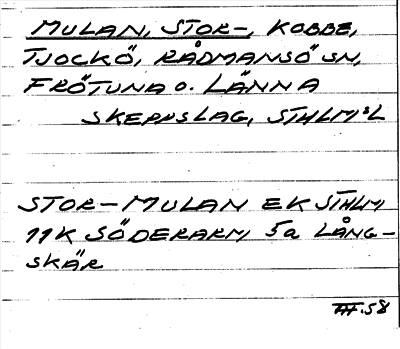 MULAN, STOR-, KOBBE,
TJOCKÖ, RÅDMANSÖ SN,
FRÖTUNA O. LÄNNA
SKEPPSLAG, STHLMS L
STOR-MULAN EK STHLM
11K SÖDERARM 5a LÅNG-
SKÄR
58